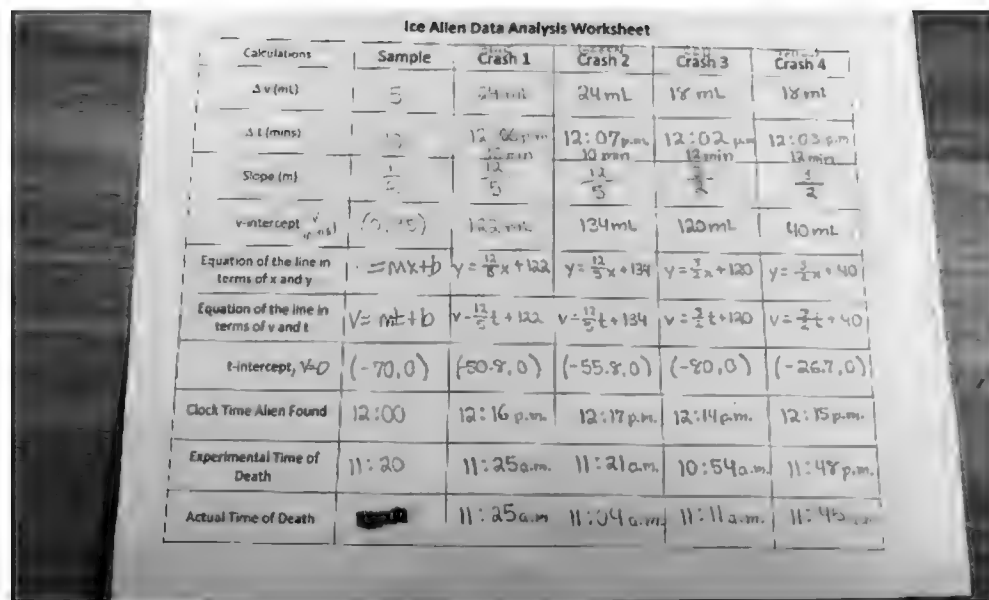 Ice Alien Data Analysis Worksheet
Calculations Sample Crash 1 Crash 2 Crash 3 Crash 4
Δv (mL) 5 24 mL 24 mL 18 mL 18 mL
Δt (mins) 12:06 p.m. 12:07 p.m. 12:02 pm 12:03 p.m
10 min 10 min 12 min 12 min
Slope (m) 1/5 12/5 12/5 3/2 3/2
v-intercept 122 mL 134 mL 120 mL 40 mL
Equation of the line in terms of x and y =mx+b y=12/5x+122 y=12/5x+134 y=3/2x+120 y=3/2x+40
Equation of the line in terms of v and t V=mt+b v=12/5t+122 v=12/5t+134 v=3/2t+120 v=3/2t+40
t-intercept, V=0 (-70,0) (-50.8,0) (-55.8,0) (-80,0) (-26.7,0)
Clock Time Alien Found 12:00 12:16 p.m. 12:17 p.m. 12:14 p.m. 12:15 p.m.
Experimental Time of Death 11:20 11:25 a.m. 11:21 a.m. 10:54 a.m. 11:48 p.m.
Actual Time of Death 11:25 a.m 11:04 a.m. 11:11 a.m. 11:45